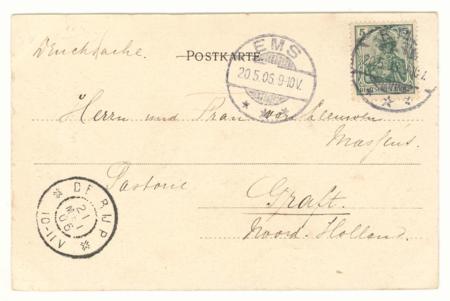 Drucksache.
POSTKARTE
EMS
20.5.06.9-10V.
5
Herrn und Frau van Leeuwen
Massens.
Pastorie
Graft.
Noord-Holland.
DE RIJP
21
MEI
06
10-11V